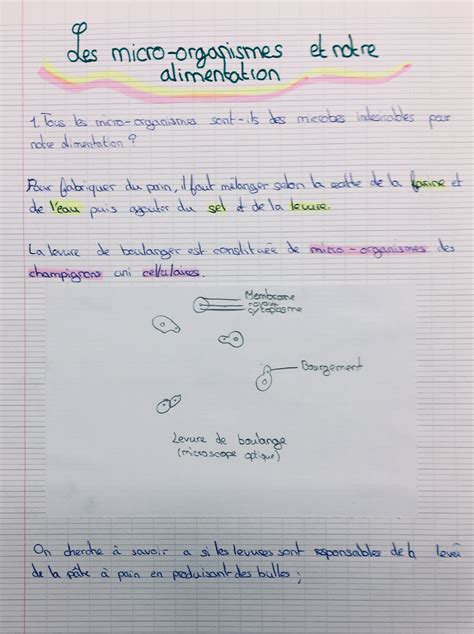 Les micro-organismes et notre
alimentation
1. Tous les micro-organismes sont-ils des microbes indésirables pour
notre alimentation ?
Pour fabriquer du pain, il faut mélanger selon la de la farine et
de l'eau puis ajouter du sel et de la levure.
La levure de boulanger est constituée de micro-organismes des
champignons uni cellulaires.
Membrane
noyau
cytoplasme
Bourgement
Levure de boulange
(microscope optique)
On cherche à savoir a si les levures sont responsables de la levée
de la pâte à pain en produisant des bulles ;